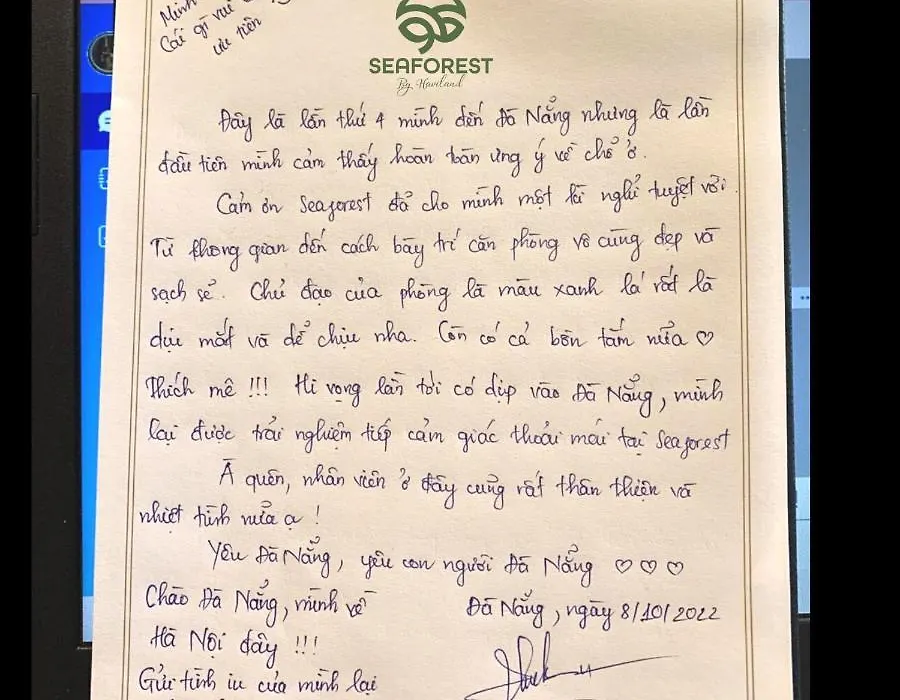 Minh
Cái gì vui
ưu tiên
SEAFOREST
By Haviland
Đây là lần thứ 4 mình đến Đà Nẵng nhưng là lần
đầu tiên mình cảm thấy hoàn toàn ưng ý về chỗ ở.
Cảm ơn Seaforest đã cho mình một kì nghỉ tuyệt vời.
Từ không gian đến cách bày trí căn phòng vô cùng đẹp và
sạch sẽ. Chủ đạo của phòng là màu xanh lá rất là
dịu mắt và dễ chịu nha. Còn có cả bồn tắm nữa ♡
Thích mê !!! Hi vọng lần tới có dịp vào Đà Nẵng, mình
lại được trải nghiệm tiếp cảm giác thoải mái tại Seaforest
À quên, nhân viên ở đây cũng rất thân thiện và
nhiệt tình nữa ạ !
Yêu Đà Nẵng, yêu con người Đà Nẵng ♡ ♡ ♡
Chào Đà Nẵng, mình về
Đà Nẵng, ngày 8/10/2022
Hà Nội đây !!!
Gửi tình iu của mình lại